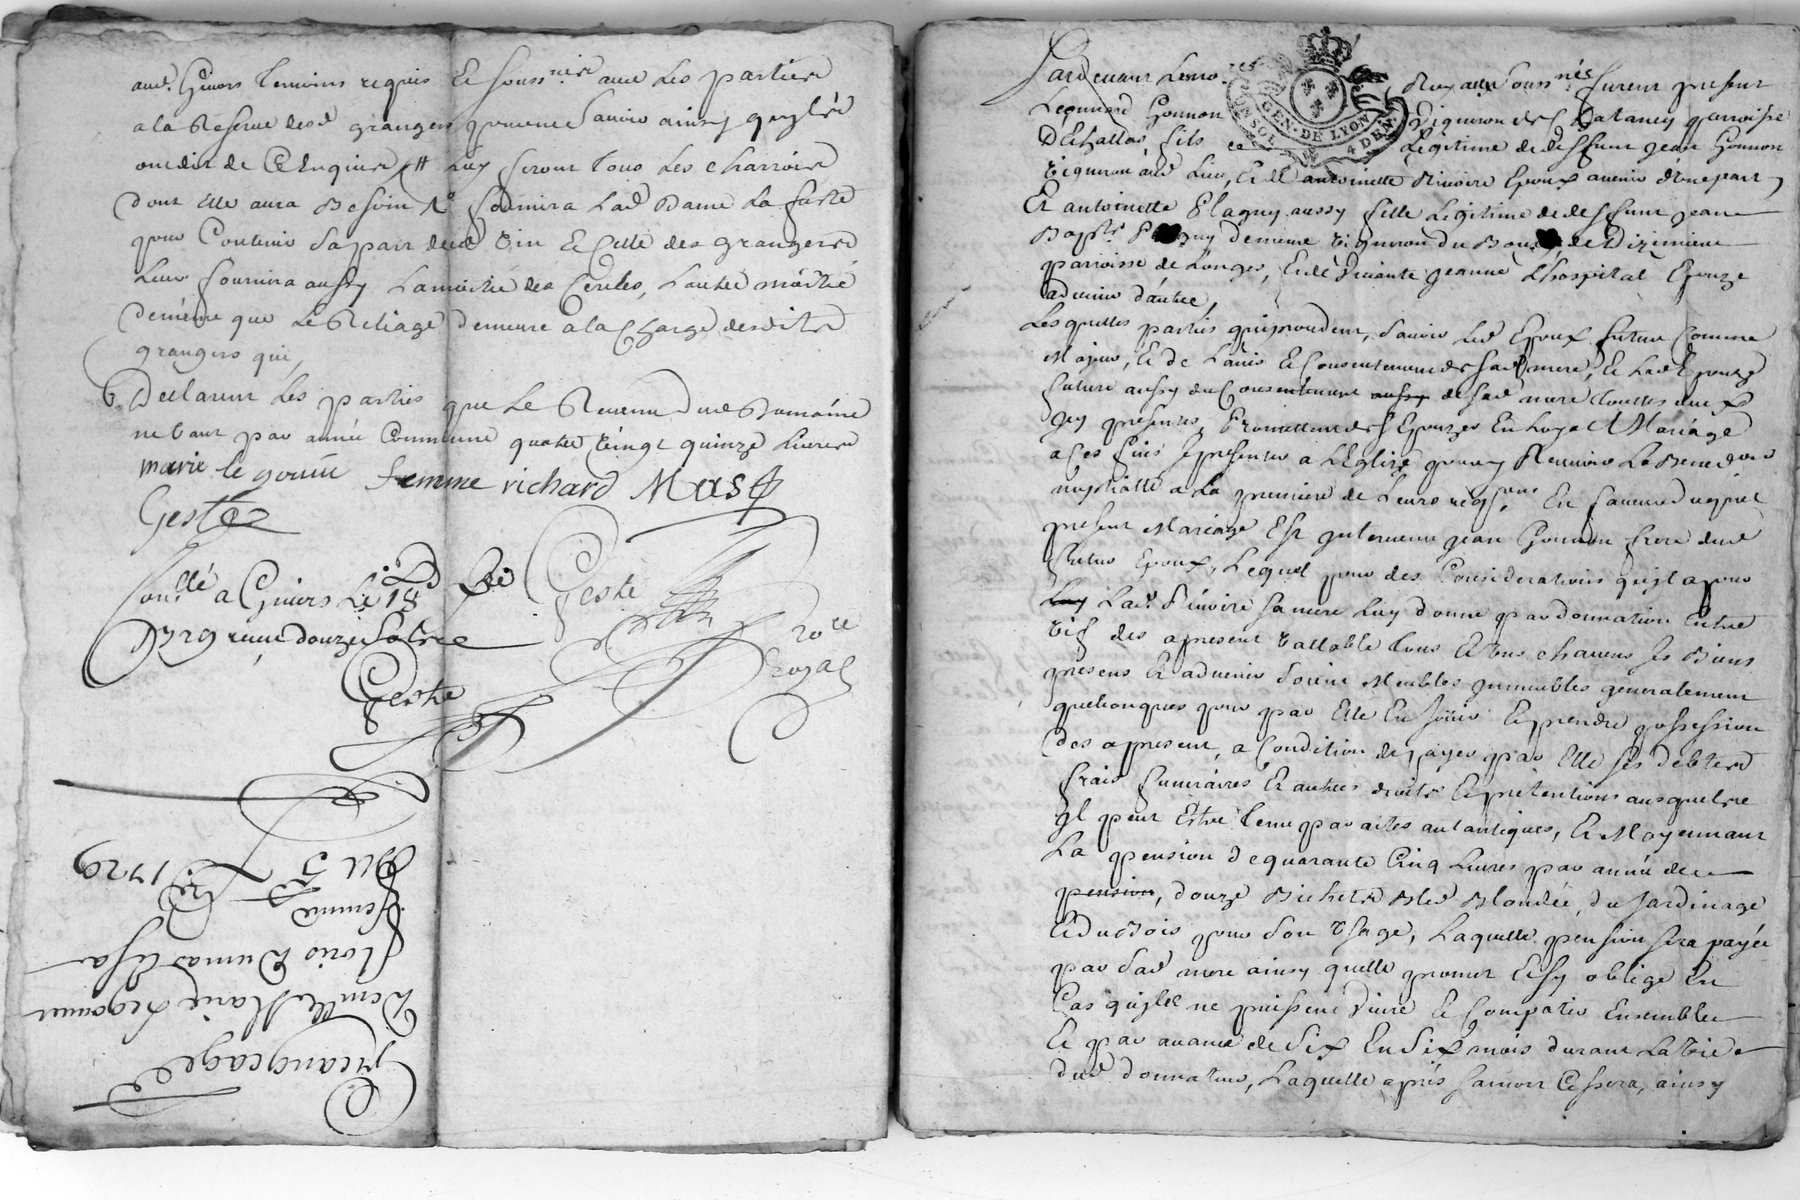 aud. Givors temoins requis Et souss.nes avec Les parties
a la Reserve desd. grangers
ont dit de ce Enquis # Luy feront tous Les charrois
dont Elle aura Besoin & fournira Lad. Dame La fuste
pour Contenir sa part dud. vin Et Celle des grangers
Leur fournira aussy La moitié des Cercles, L'autre moitié
de meme que Le Reliage demeure a la Charge desdits
grangers qui,
6. Declarent Les parties que Le Revenu dud. Domaine
ne vaut par année Commune quatre vingt quinze Livres
marie le gouüe femme richard Mas
Geste
Con.llé a Givors Le 18
1729 reçu douze sols
Geste
Geste
No.re
Royal
Grangeage
Dem.lle Marie Legouue
Floris Dumas Et sa
femme
Du 5 1729
GEN. DE LYON
UN SOL 4 DEN.
Pardevant Les no.res Royaux souss.nés furent present
Leonnard Gonnon Vigneron de Chatanay parroisse
D'Echallas fils Legitime de deffunt Jean Gonnon
Vigneron aud. Lieu, Et d'antoinette Riviere Epoux avenir d'une part,
Et antoinette Flagny aussy fille Legitime de deffunt Jean
Bap.te de meme vigneron du Bourg de Dizimieu
parroisse de Longes, Et de vivante Jeanne L'hospital Epouze
advenir d'autre,
Lesquelles parties procedant, savoir led. Epoux futur Comme
Majeur, Et de L'avis Et Consentement de sad. mere, Et Lad. Epouze
future aussy du Consentement aussy de sad. mere touttes deux
Icy presentes, Promettent de s'Epouzer En Loyal Mariage
a Ces fins se presenter a L'Eglize pour y Recevoir La Bened.on
nuptialle a La premiere de Leurs req.ons En faveur duquel
present Mariage Est Intervenu Jean Gonnon frere dud.
futur Epoux, Lequel pour des Considerations qu'il a pour
Luy Lad. Riviere sa mere Luy donne par donnation entre
vif des apresent vallable tous Et uns chacuns ses Biens
presens Et advenir soient Meubles Immeubles generalement
quelconques pour par Elle En Jouir Et prendre possession
des apresent, a Condition de payer par Elle ses debtes
frais funeraires Et autres droits Et pretentions ausquels
Il peut Estre tenu par actes autantiques, Et Moyennant
La pension de quarante Cinq Livres par année de
pension, douze Bichets Bled Blondée, du Jardinage
Et du Bois pour son Usage, Laquelle pension sera payée
par sad. mere ainsy qu'elle promet Et s'y oblige En
Cas qu'ils ne puissent vivre Et Compatir Ensemble
Et par avance de Six En Six mois durant La vie
dud. donnateur, Laquelle après sa mort Cessera, ainsy